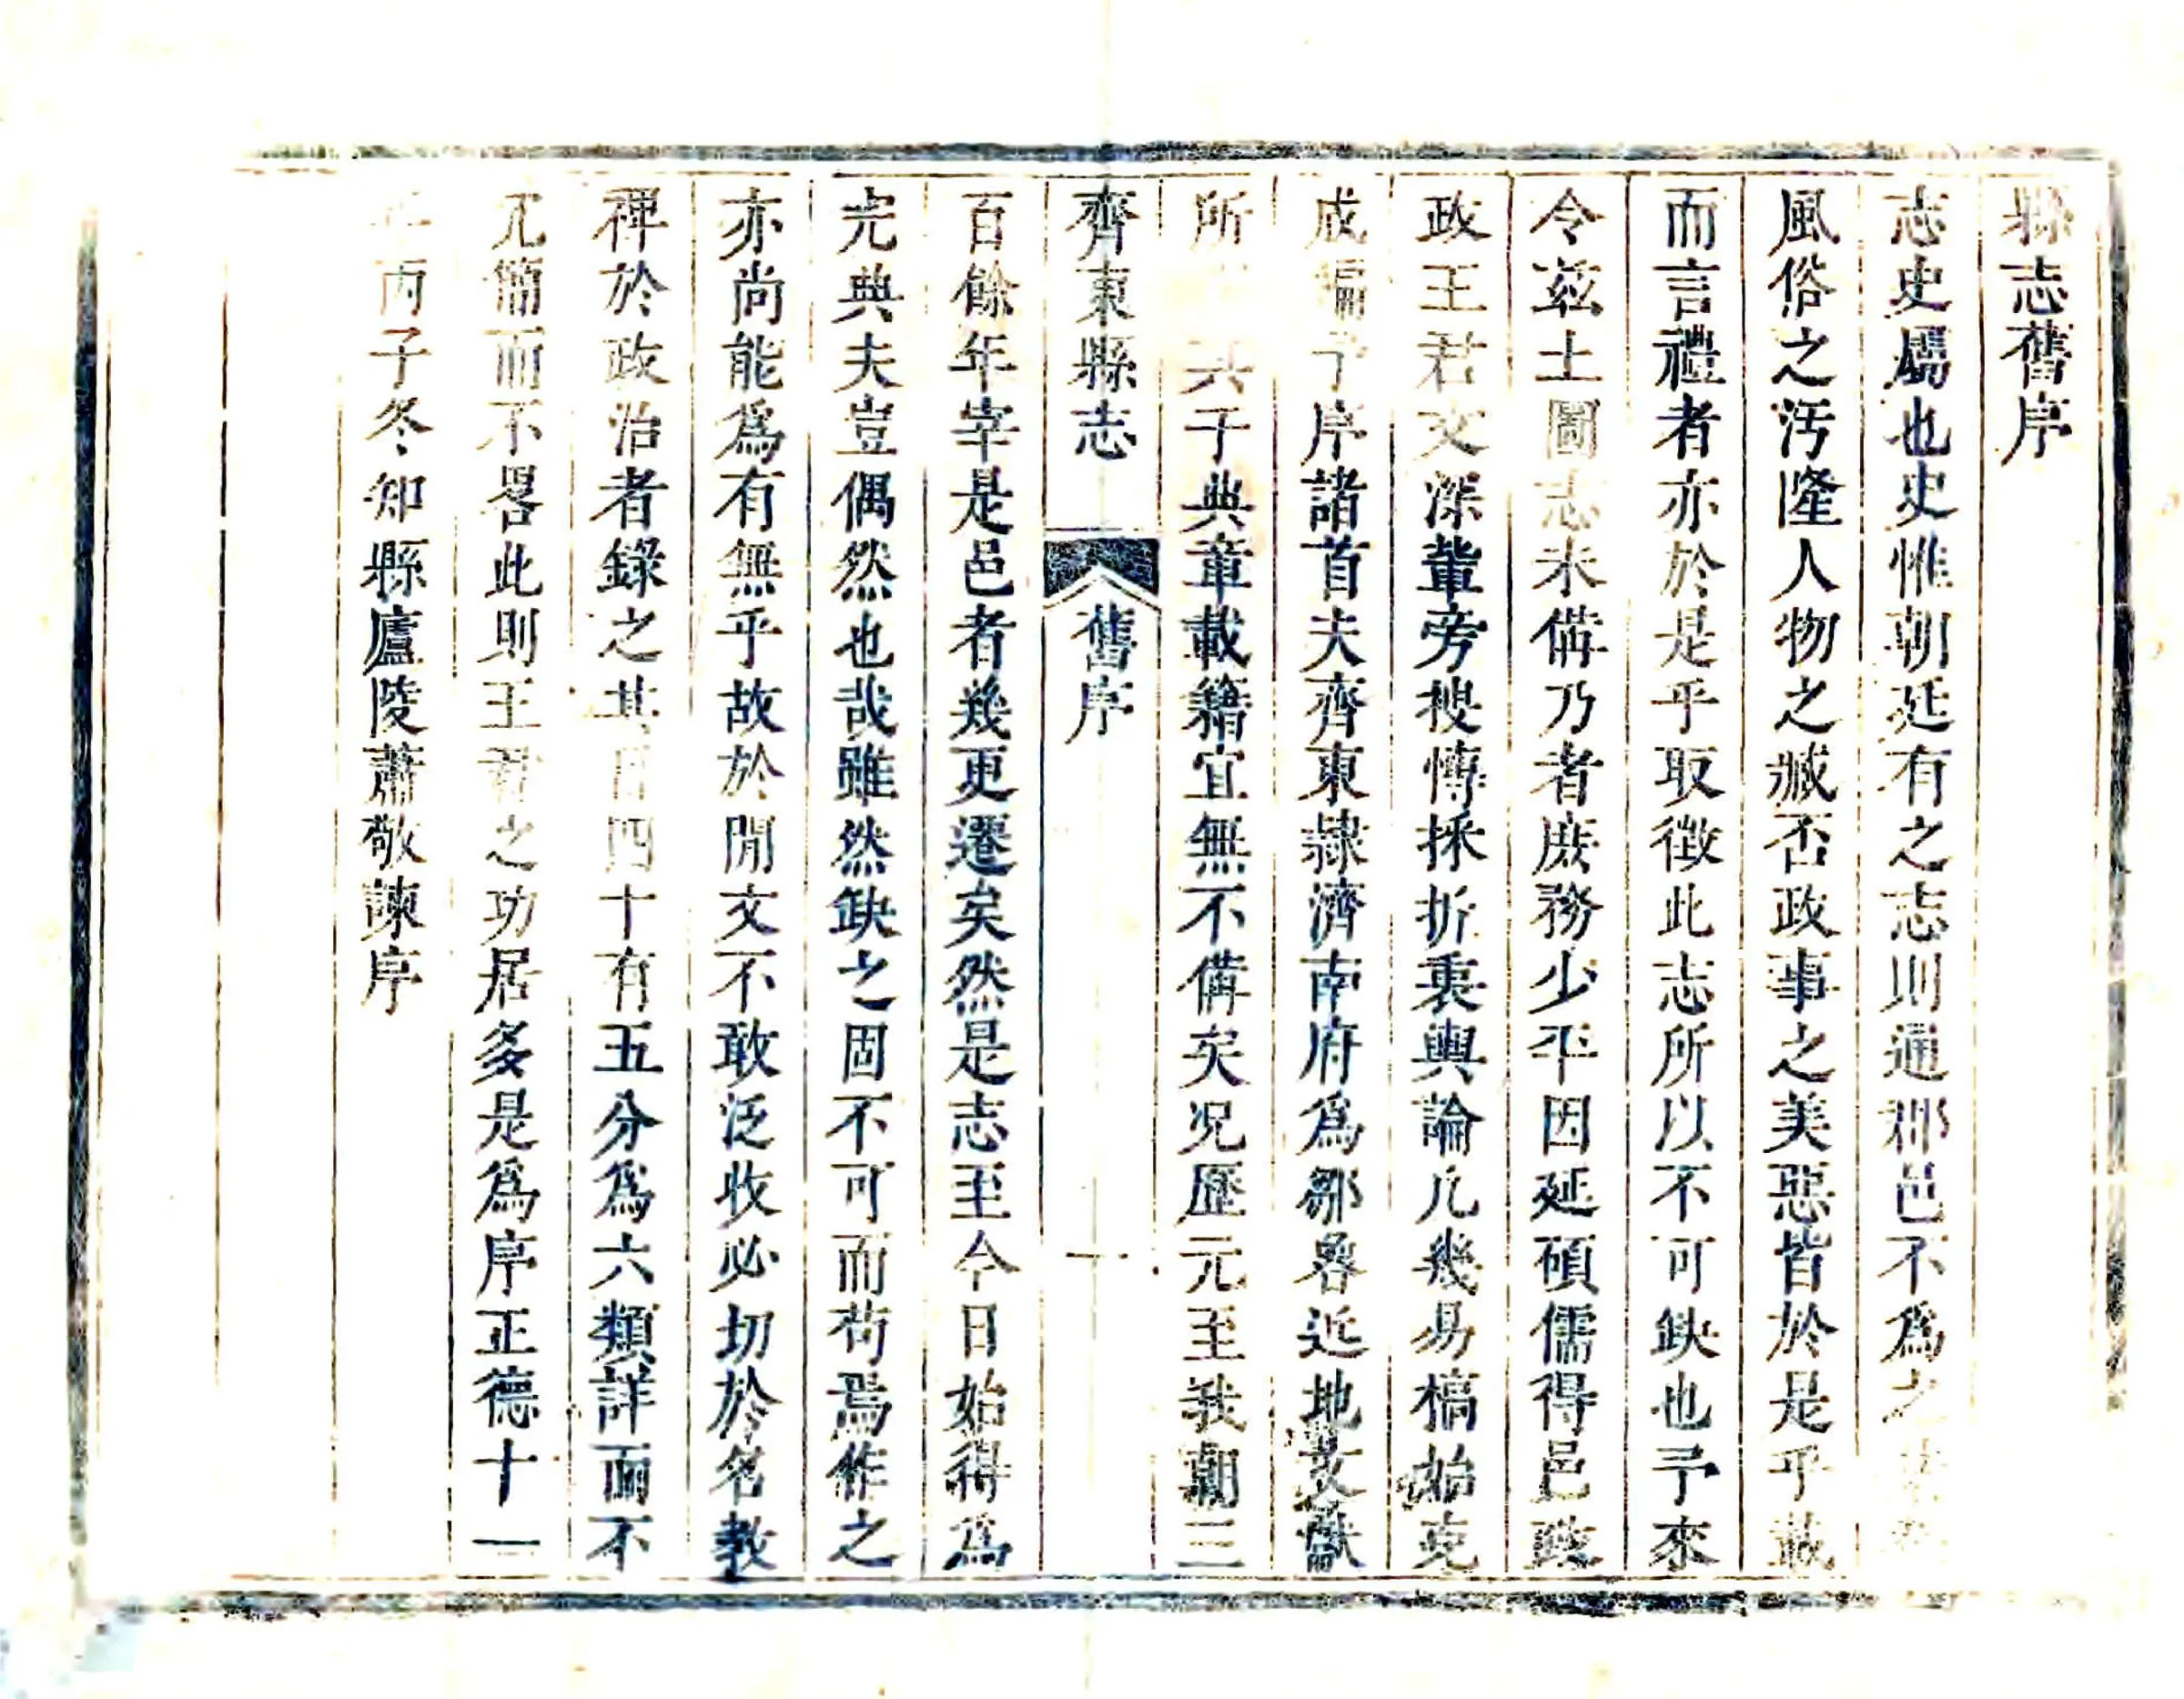 縣志舊序
志史屬也史惟朝廷有之志則通郡邑不爲之
風俗之汚隆人物之臧否政事之美惡皆於是乎載
而言禮者亦於是乎取徵此志所以不可缺也予來
令茲土圖志未備乃者庶務少平因延碩儒得邑致
政王君文深輩旁搜慱採折衷輿論凡幾易槁始克
成編予序諸首夫齊東隷濟南府爲鄒魯近地文獻
所共于典章載籍宜無不備矣况歷元至我朝三
齊東縣志 舊序 十
百餘年宰是邑者幾更遷矣然是志至今日始得爲
完典夫豈偶然也哉雖然缺之固不可而苟焉作之
亦尚能爲有無乎故於閒文不敢泛收必切於名教
裨於政治者錄之其目四十有五分爲六類詳而不
冗簡而不畧此則王君之功居多是爲序正德十一
年丙子冬知縣廬陵蕭敬諫序